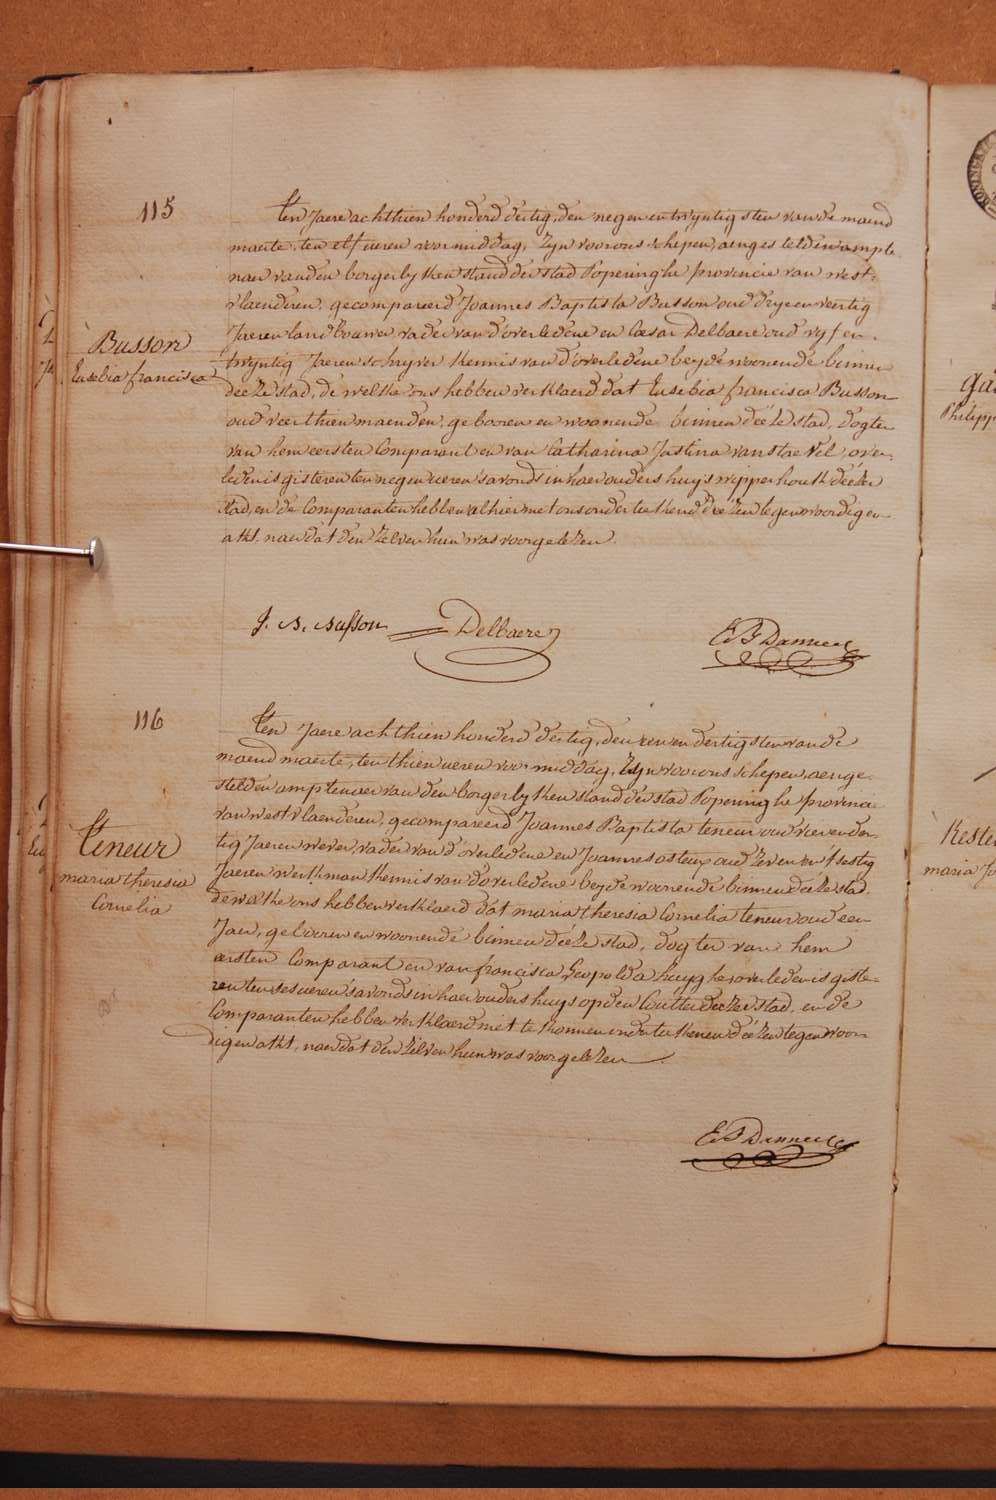 115
Busson
Eusebia francisca
ten Jaere achthien honderd dertig, den negen en twyntigsten van de maend
maerte, ten elf ueren voormiddag, Zyn voor ons schepen, aengestelden ampte-
naer van den borgerlyken stand der stad Poperinghe provincie van west-
vlaenderen, gecompareerd Joannes Baptista Busson oud dryen veertig
Jaeren landbouwer, vader van d'overledene en Cæsar Delbaere oud vyf en
twyntig Jaeren schryver kennis van d'overledene beyde woonende binnen
deéze stad, de welke ons hebben verklaerd dat Eusebia francisca Busson
oud veerthien maenden, gebooren en woonende binnen deéze stad, dogter
van hem eersten Comparant en van Catharina Justina van stae Vel, over-
leden is gisteren ten negen ueren s'avonds in haer ouders huys wipperhoek deézer
stad, en de Comparanten hebben alhier met ons onderteekend deézen tegenwoordigen
akt, naer dat den Zelven hun was voorgelezen.
J. B. Busson Delbaere
116
teneur
maria theresia
Cornelia
ten Jaere achthien honderd dertig, den een en dertigsten van de
maend maerte, ten thien ueren voormiddag, Zyn voor ons schepen, aenge-
stelden amptenaer van den borgerlyken stand der stad Poperinghe provincie
van westvlaenderen, gecompareerd Joannes Baptista teneur oud vier en der-
tig Jaeren wever, vader van d'overledene en Joannes osteux oud Zeven en t'sestig
Jaeren werkman kennis van d'overledene beyde woonende binnen deéze stad,
de welke ons hebben verklaerd dat maria theresia Cornelia teneur oud een
Jaer, gebooren en woonende binnen deéze stad, dogter van hem
eersten Comparant en van francisca Leopolda huyghe, overleden is giste-
ren ten ses ueren s'avonds in haer ouders huys op den Cutter deézer stad, en de
Comparanten hebben verklaerd niet te konnen onderteekenen deézen tegenwoor-
digen akt, naer dat den Zelven hun was voorgelezen